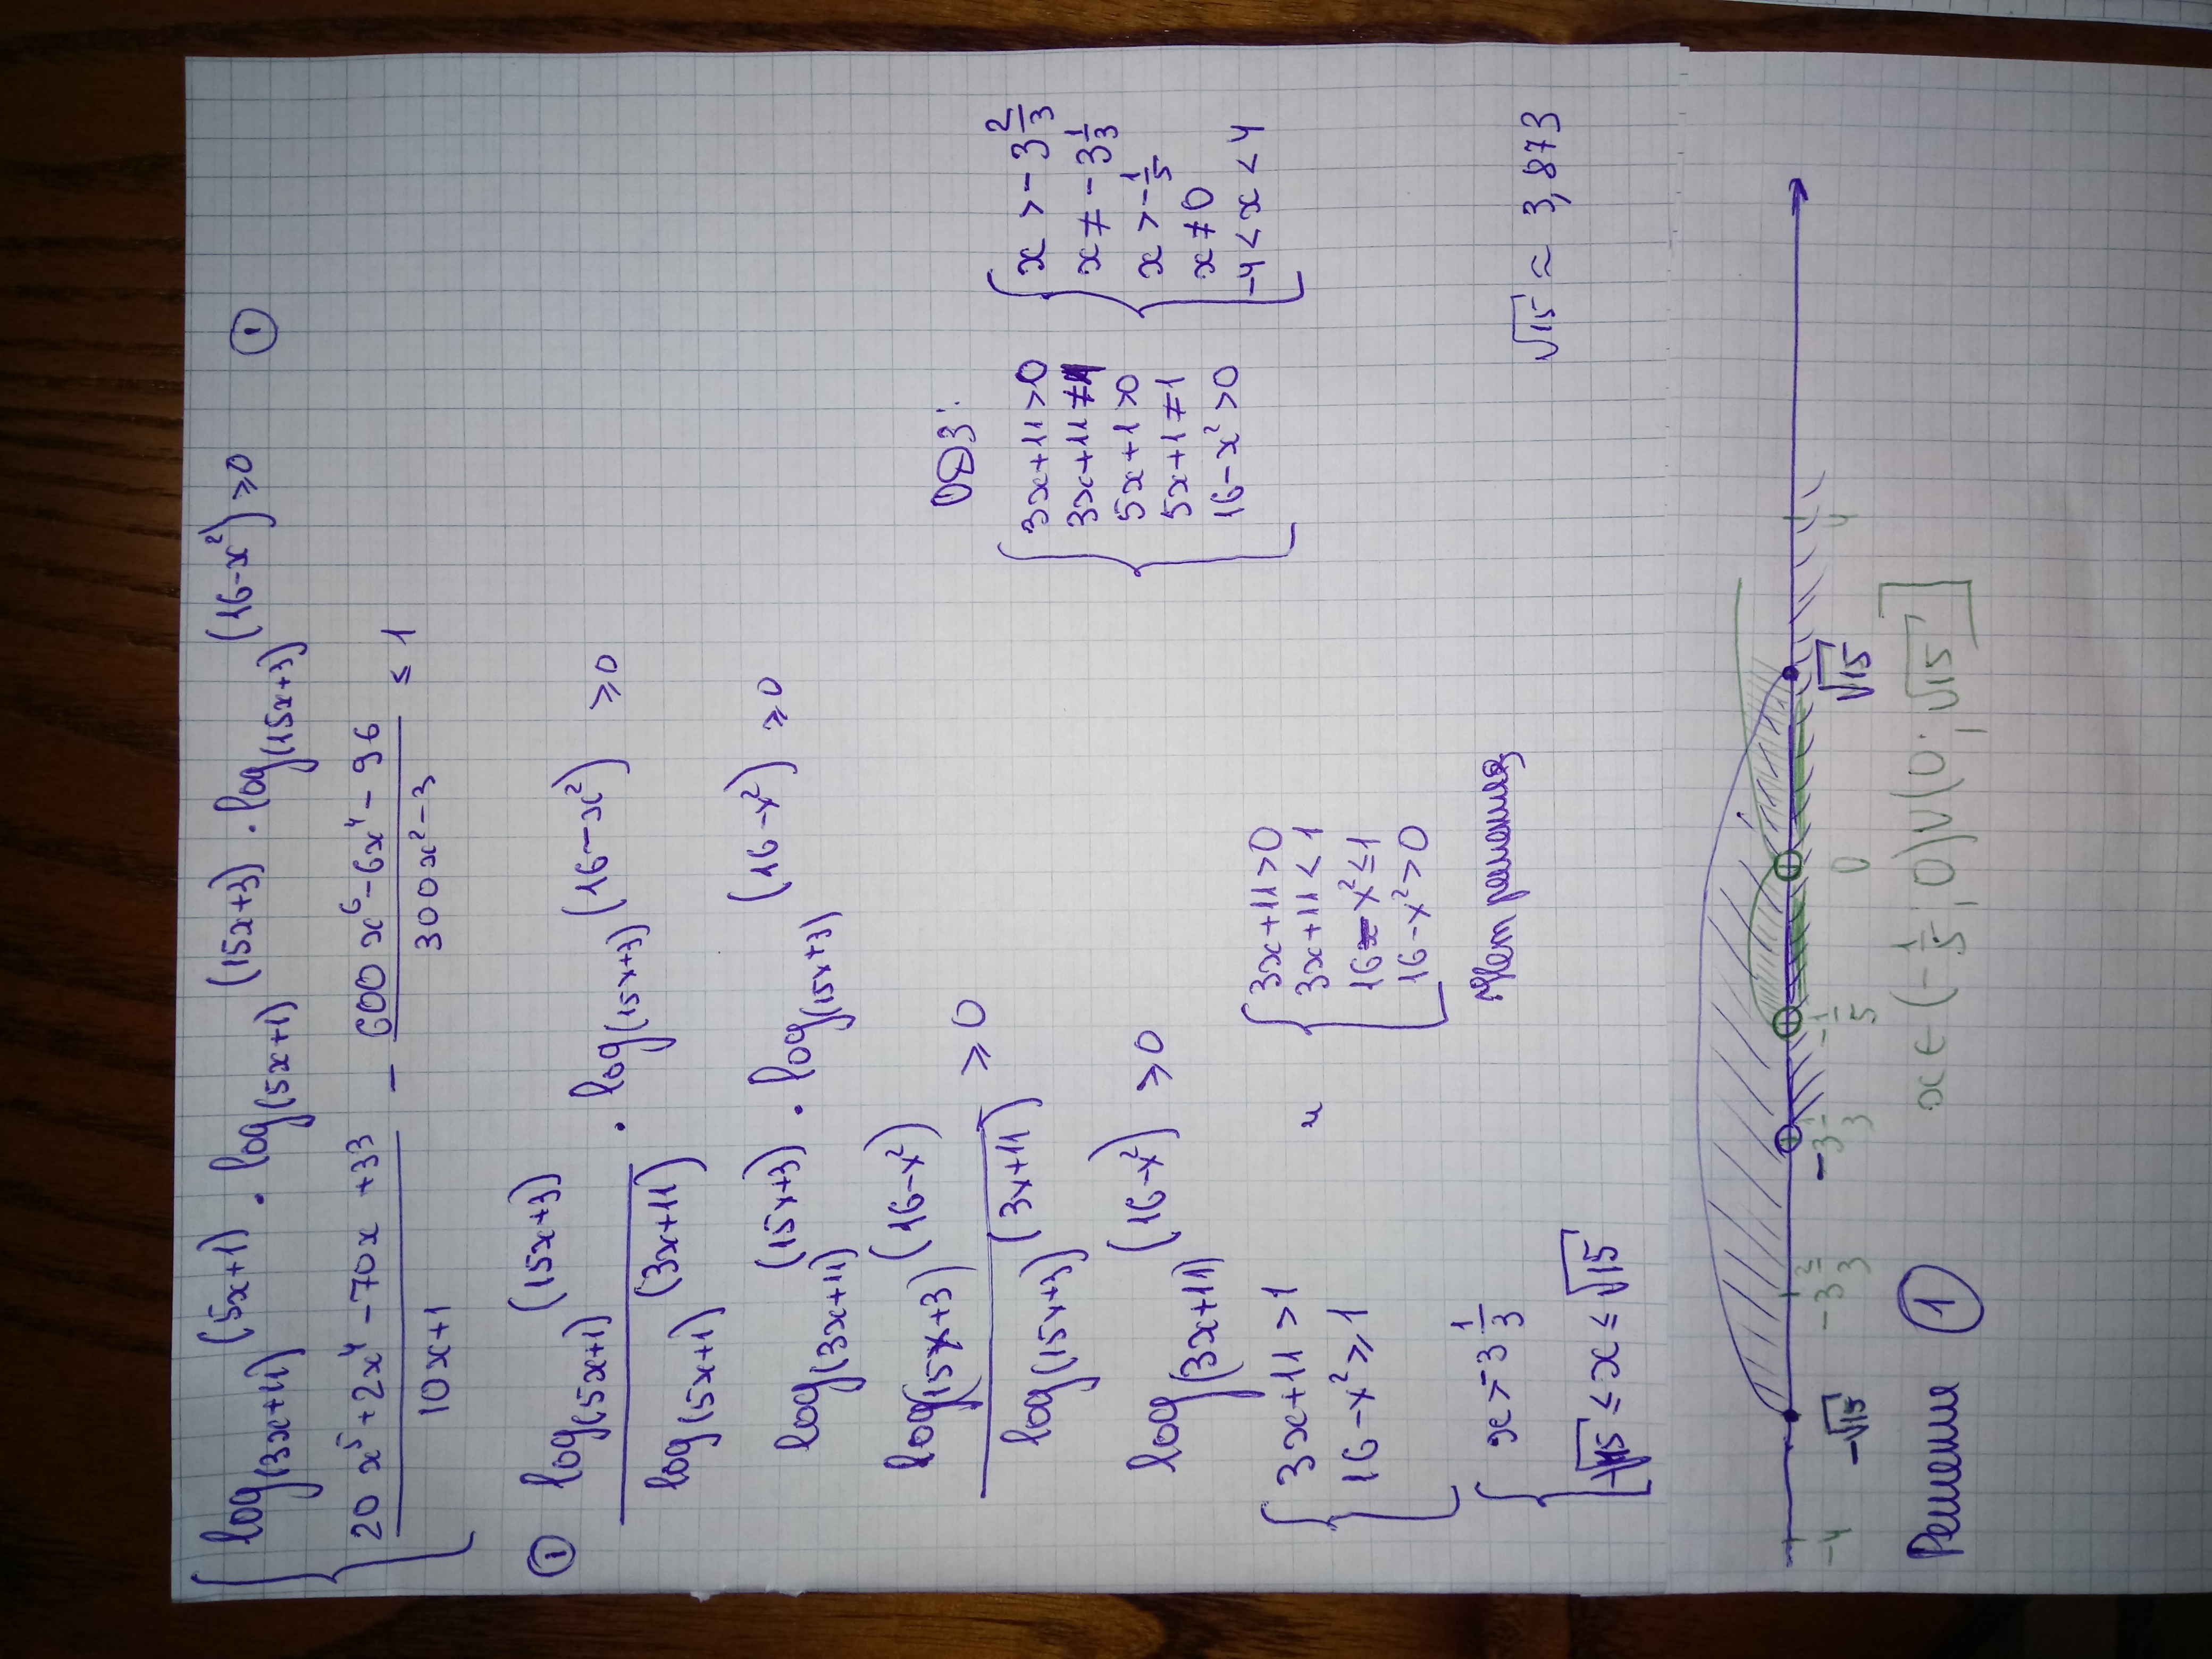 log(3x+11) (5x+1) · log(5x+1) (15x+3) · log(15x+3) (16-x²) ≥0 ①
(20x⁵+2x⁴-70x+33)/(10x+1) - (600x⁶-6x⁴-96)/(300x²-3) ≤ 1
① log(5x+1) (15x+3) / log(5x+1) (3x+11) · log(15x+3) (16-x²) ≥0
log(3x+11) (15x+3) · log(15x+3) (16-x²) ≥0
log(15x+3) (16-x²) / log(15x+3) (3x+11) ≥ 0
log(3x+11) (16-x²) ≥0
ОДЗ:
{ 3x+11>0
3x+11≠1
5x+1>0
5x+1≠1
16-x²>0
{ x>-3 2/3
x≠-3 1/3
x>-1/5
x≠0
-4<x<4
{ 3x+11>1
16-x²≥1
и
{ 3x+11>0
3x+11<1
16-x²≤1
16-x²>0
Нет решения
{ x>-3 1/3
-√15≤x≤√15
√15≈3,873
-4 -√15 -3 2/3 -3 1/3 -1/5 0 √15 4
Решение ① x∈(-1/5;0)∪(0;√15]